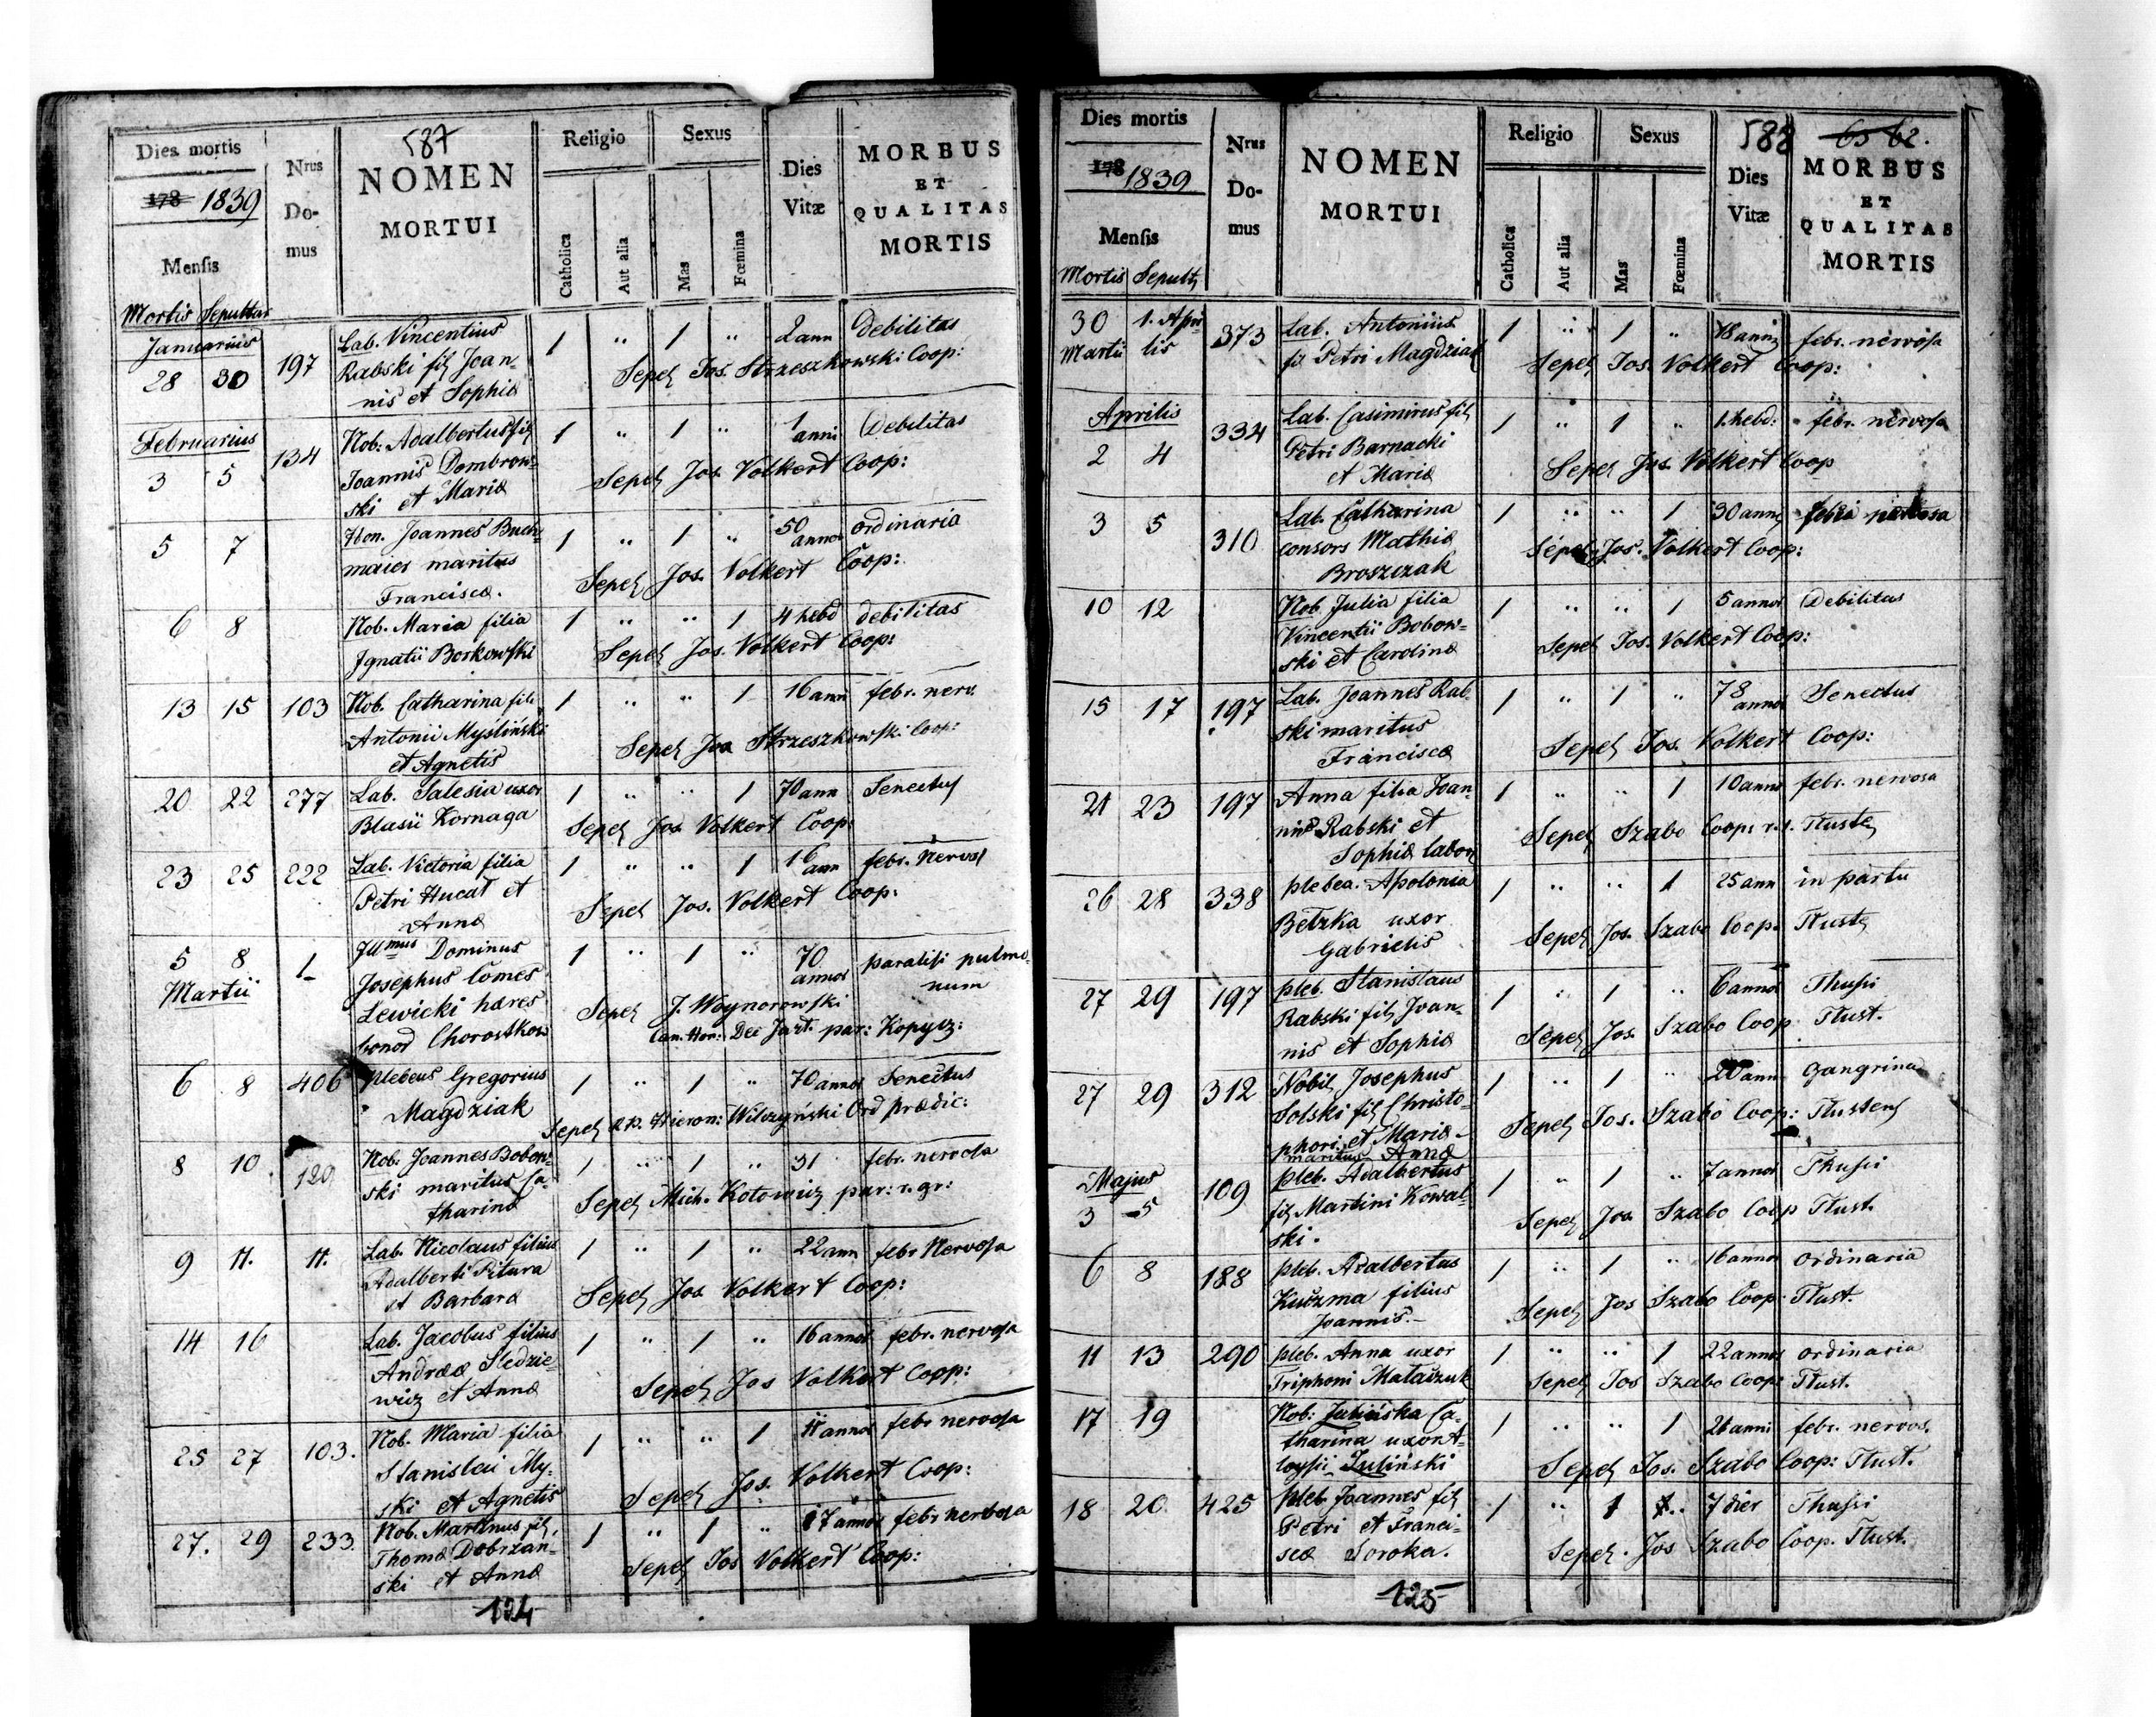 587
Dies mortis
178 1839
Mensis
Mortis Sepultur
Nrus
Do-
mus
NOMEN
MORTUI
Religio
Catholica
Aut alia
Sexus
Mas
Fœmina
Dies
Vitæ
MORBUS
ET
QUALITAS
MORTIS
Januarius
28 30 197 Lab. Vincentius 1 " 1 " 2 ann Debilitas
Rabski fil Joan-
nis et Sophiæ
Sepel Jos. Strzeszkowski Coop:
Februarius
3 5 134 Nob. Adalbertus fil 1 " 1 " 1 anni Debilitas
Joannis Dombrow-
ski et Mariæ
Sepel Jos. Volkert Coop:
5 7 Hon. Joannes Buch- 1 " 1 " 50 annor ordinaria
maier maritus
Franciscæ.
Sepel Jos. Volkert Coop:
6 8 Nob. Maria filia 1 " " 1 4 hebd debilitas
Ignatii Borkowski
Sepel Jos. Volkert Coop:
13 15 103 Nob. Catharina fili 1 " " 1 16 ann febr. nerv.
Antonii Myśliński
et Agnetis
Sepel Jos Strzeszkowski Coop:
20 22 277 Lab. Salesia uxor 1 " " 1 70 ann Senectus
Blasii Kornaga
Sepel Jos Volkert Coop:
23 25 222 Lab. Victoria filia 1 " " 1 16 ann febr. Nervos
Petri Hucat et
Annæ
Sepel Jos. Volkert Coop:
5 8 1 Illmus Dominus 1 " 1 " 70 annor paralisi pulmo-
num
Martii
Josephus Comes
Lewicki hæres
bonor Chorostkow
Sepel J. Woynorowski
Can. Hon: Dec Jazt. par: Kopycz:
6 8 406 plebeus Gregorius 1 " 1 " 70 annor Senectus
Magdziak
Sepel R.P. Hieron: Wilczyński Ord prædic:
8 10 120 Nob. Joannes Bobow- 1 " 1 " 31 febr. nervosa
ski maritus Ca-
tharinæ
Sepel Mich. Kotowicz par: r. gr:
9 11. 11. Lab. Nicolaus filius 1 " 1 " 22 ann febr Nervosa
Adalberti Pitura
et Barbaræ
Sepel Jos Volkert Coop:
14 16 Lab. Jacobus filius 1 " 1 " 16 annor febr. nervosa
Andreæ Sledzie-
wicz et Annæ
Sepel Jos Volkert Copp:
25 27 103. Nob. Maria filia 1 " " 1 11 annor febr nervosa
Stanislai My-
ski et Agnetis
Sepel Jos. Volkert Coop:
27. 29 233. Nob. Martinus fil. 1 " 1 " 17 annor febr nervosa
Thomæ Dobrzan-
ski et Annæ
Sepel Jos Volkert Coop:
124
588 65 62.
Dies mortis
178 1839
Mensis
Mortis Sepult
Nrus
Do-
mus
NOMEN
MORTUI
Religio
Catholica
Aut alia
Sexus
Mas
Fœmina
Dies
Vitæ
MORBUS
ET
QUALITAS
MORTIS
30 1. Apri- 373 Lab. Antonius 1 " 1 " 18 anni febr. nervosa
Martii lis fil Petri Magdziak
Sepel Jos. Volkert Coop:
Aprilis
2 4 334 Lab. Casimirus fil 1 " 1 " 1. hebd: febr. nervosa
Petri Barnacki
et Mariæ
Sepel Jos. Volkert Coop
3 5 310 Lab. Catharina 1 " " 1 30 anni febri nervosa
consors Mathiæ
Broszczak
Sepel Jos. Volkert Coop:
10 12 Nob. Julia filia 1 " " 1 5 annor Debilitas
Vincentii Bobow-
ski et Carolinæ
Sepel Jos. Volkert Coop:
15 17 197 Lab. Joannes Rab- 1 " 1 " 78 annor Senectus
ski maritus
Franciscæ
Sepel Jos. Volkert Coop:
21 23 197 Anna filia Joan- 1 " " 1 10 annor febr. nervosa
nis Rabski et
Sophiæ labor
Sepel Szabo Coop: r. l. Tluste
26 28 338 plebea. Apolonia 1 " " 1 25 ann in partu
Betzka uxor
Gabrielis
Sepel Jos. Szabo Coop. Tluste
27 29 197 pleb. Stanislaus 1 " 1 " 6 annor Thussi
Rabski fil Joan-
nis et Sophiæ
Sepel Jos. Szabo Coop Tlust.
27 29 312 Nobil Josephus 1 " 1 " 20 ann gangrina
Solski fil Christo-
phori et Mariæ
maritus Annæ
Sepel Jos. Szabo Coop: Tlustens
Majus
3 5 109 pleb. Adalbertus 1 " 1 " 7 annor Thussi
fil Martini Kowal-
ski.
Sepel Jos Szabo Coop Tlust.
6 8 188 pleb. Adalbertus 1 " 1 " 16 annor ordinaria
Kuczma filius
Joannis.
Sepel Jos Szabo Coop: Tlust.
11 13 290 pleb. Anna uxor 1 " " 1 22 annor ordinaria
Triphoni Mataszuk
Sepel Jos Szabo Coop: Tlust.
17 19 Nob: Julińska Ca- 1 " " 1 21 anni febr. nervos.
tharina uxor A-
loysii Juliński
Sepel Jos. Szabo Coop: Tlust.
18 20 425 pleb Joannes fil 1 " 1 " 7 dier Thussi
Petri et Franci-
scæ Soroka.
Sepel. Jos Szabo Coop. Tlust.
125